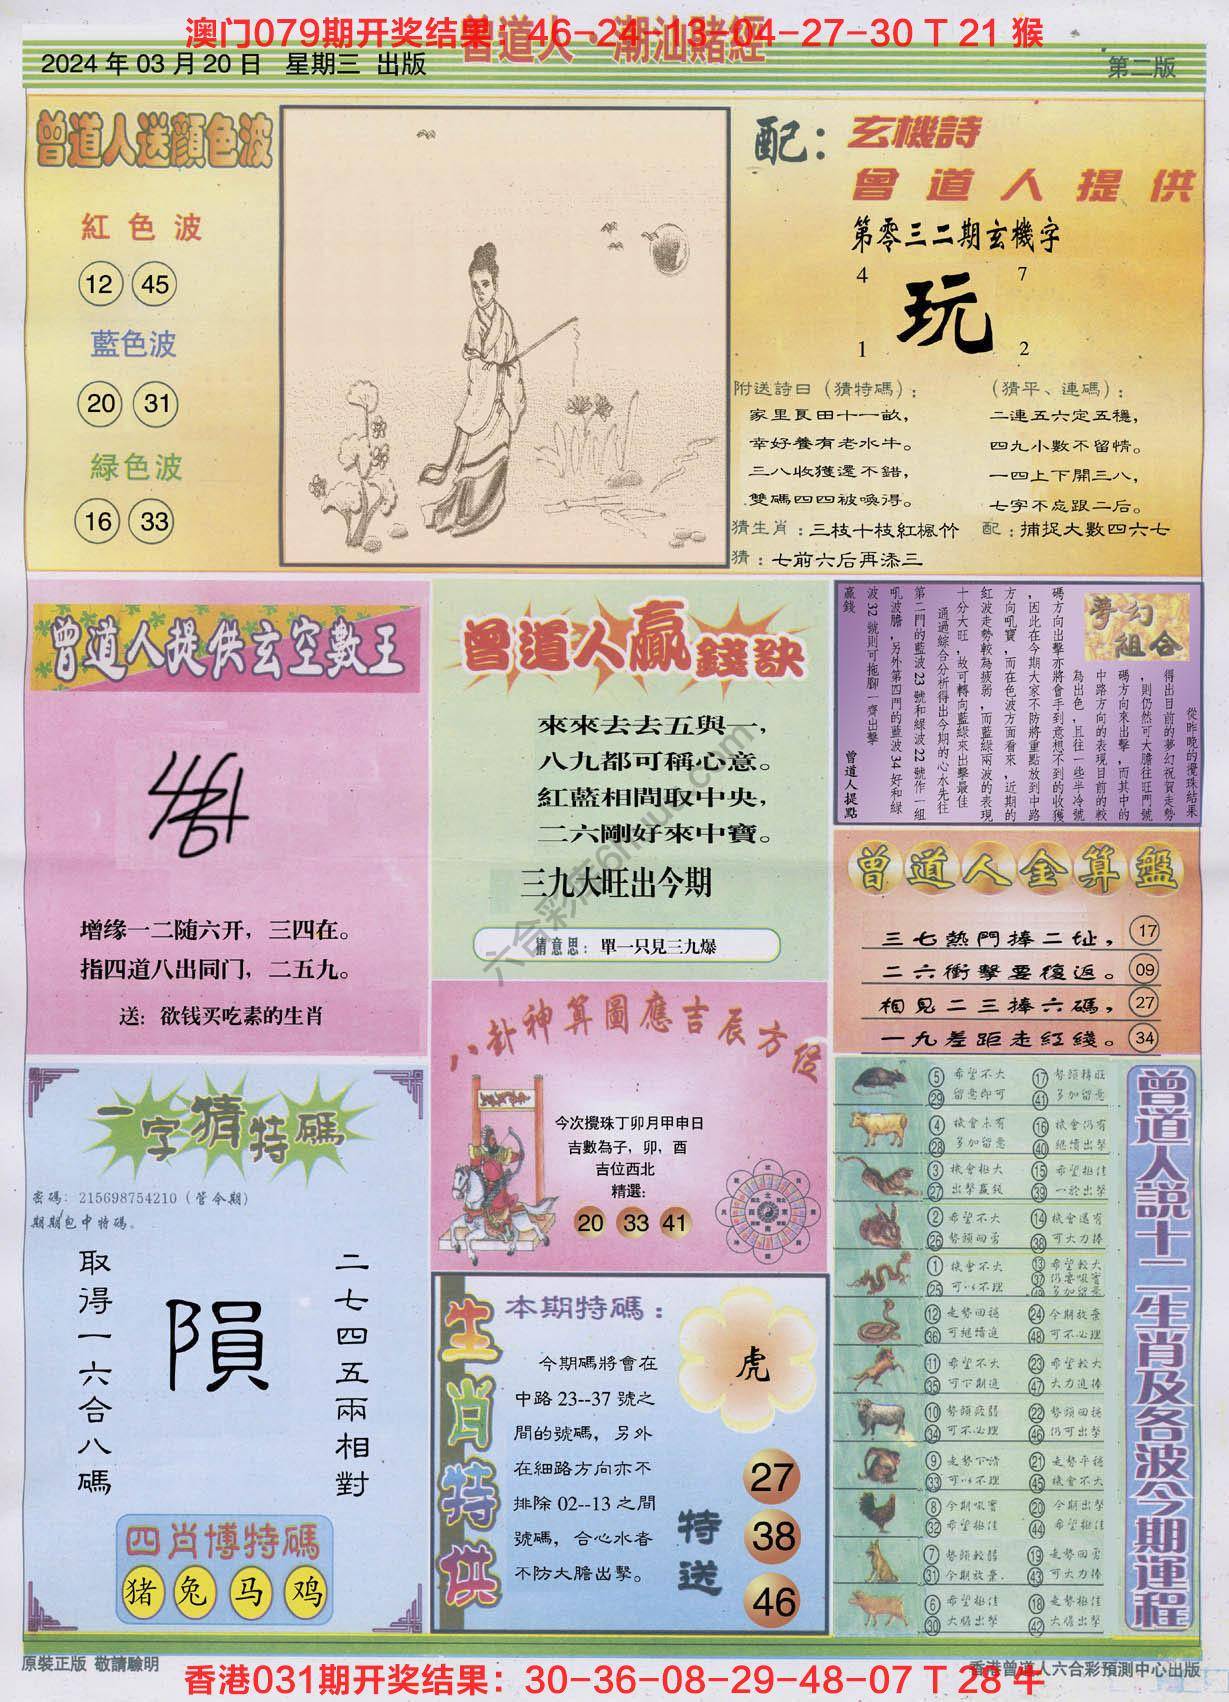 澳门079期开奖结果：46-24-13-04-27-30 T 21 猴
曾道人·潮汕賭經
2024 年 03 月 20 日 星期三 出版
第二版
曾道人送顏色波
紅色波
12 45
藍色波
20 31
綠色波
16 33
配：玄機詩
曾道人提供
第零三二期玄機字
4 7
玩
1 2
附送詩曰（猜特碼）：
家里良田十一畝，
幸好養有老水牛。
三八收獲還不錯，
雙碼四四被喚得。
（猜平、連碼）：
二連五六定五穩，
四九小數不留情。
一四上下開三八，
七字不忘跟二后。
猜生肖：三枝十枝紅楓竹
配：捕捉大數四六七
猜：七前六后再添三
曾道人提供玄空數王
增缘一二随六开，三四在。
指四道八出同门，二五九。
送：欲钱买吃素的生肖
曾道人贏錢訣
來來去去五與一，
八九都可稱心意。
紅藍相間取中央，
二六剛好來中寶。
三九大旺出今期
猜意思：單一只見三九爆
夢幻組合
從昨晚的攪珠結果
得出目前的夢幻祝賀走勢
，則仍然可大膽往旺門號
碼方向來出擊，而其中的
中路方向的表現目前的較
為出色，且往一些半冷號
碼方向出擊亦將會手到意想不到的收獲
，因此在今期大家不防將重點放到中路
方向吼寶，而在色波方面看來，近期的
紅波走勢較為疲弱，而藍綠兩波的表現
十分大旺，故可轉向藍綠來出擊最佳
通過綜合分析得出今期的心水先往
第二門的藍波23號和綠波22號作一組
吼波膽，另外第四門的藍波34好和綠
波32號則可拖腳一齊出擊
贏錢
曾道人提點
曾道人金算盤
三七熱門捧二址， 17
二六衝擊要復返。 09
相見二三捧六碼， 27
一九差距走紅綫。 34
八卦神算圖應吉辰方位
今次攪珠丁卯月甲申日
吉數為子，卯，酉
吉位西北
精選：
20 33 41
一字猜特碼
密碼：215698754210（管今期）
期期包中特碼。
二七四五兩相對
隕
取得一六合八碼
四肖博特碼
猪 兔 马 鸡
生肖特供
本期特碼：
今期碼將會在
中路 23--37 號之
間的號碼，另外
在細路方向亦不
排除 02--13 之間
號碼，合心水者
不防大膽出擊。
虎
特送
27
38
46
曾道人說十二生肖及各波今期運程
5 希望不大 17 勢頭轉旺
29 留意即可 41 多加留意
4 機會未有 16 機會仍有
28 多加留意 40 繼續出擊
3 機會挺大 15 希望挺佳
27 出擊贏錢 39 一於出擊
2 希望不大 14 機會還有
26 勢頭回勇 38 可大力捧
1 機會不大 13 希望較大
25 可以不理 37
12 走勢回穩 24 今期放棄
36 可繼續追 48 可不必理
11 希望不大 23 希望較大
35 可下期追 47 大力追捧
10 勢頭疲弱 22 勢頭回穩
34 可不必理 46 仍可出擊
9 走勢下清 21 走勢平穩
33 可以不理 45 機會不大
8 今期吼實 20 今期出擊
32 希望挺佳 44 希望挺佳
7 勢頭較弱 19 走勢回勇
31 今期放棄. 43 可大力捧
6 希望挺佳 18 走勢挺佳
30 大膽出擊 42 大膽出擊
原裝正版 敬請驗明
香港曾道人六合彩預測中心出版
香港031期开奖结果：30-36-08-29-48-07 T 28 牛